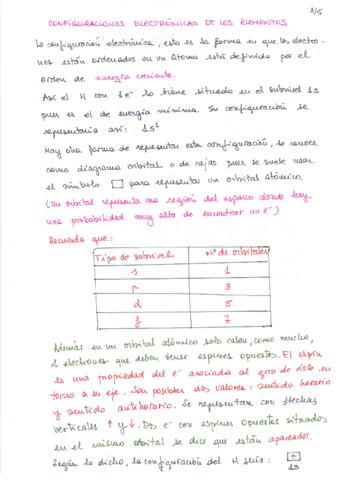 1/5
CONFIGURACIONES ELECTRÓNICAS DE LOS ELEMENTOS
La configuración electrónica, esto es la forma en que los electro-
nes están ordenados en un átomo está definida por el
orden de energía creciente.
Así el H con 1e⁻ lo tiene situado en el subnivel 1s
pues es el de energía mínima. Su configuración se
representaría así: 1s¹
Hay otra forma de representar esta configuración, se conoce
como diagrama orbital o de cajas pues se suele usar
el símbolo □ para representar un orbital atómico.
(un orbital representa una región del espacio donde hay
una probabilidad muy alta de encontrar un e⁻)
Recuerda que:
Tipo de subnivel Nº de orbitales
s 1
p 3
d 5
f 7
Además en un orbital atómico solo caben, como mucho,
2 electrones que deben tener espines opuestos. El espín
es una propiedad del e⁻ asociada al giro de éste en
torno a su eje. Son posibles dos valores: sentido horario
y sentido antihorario. Se representan con flechas
verticales ↑ y ↓. Dos e⁻ con espines opuestos situados
en el mismo orbital se dice que están apareados.
Según lo dicho, la configuración del H sería: ↑
1s